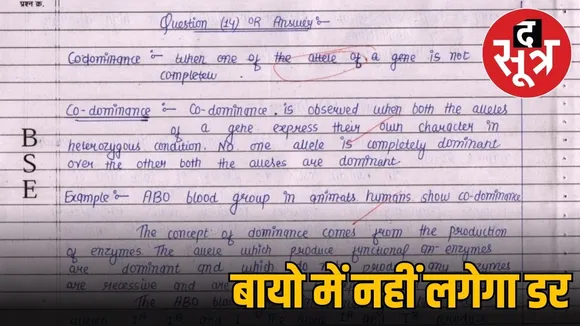 प्रश्न क्र.
Question (14) OR Answer :-
द
सूत्र
Codominance :- When one of the allele of a gene is not
completew.
Co-dominance :- Co-dominance. is observed when both the alleles
of a gene express their own character in
heterozygous condition. No one allele is completely dominant
over the other both the alleses are dominant.
BSE
Example :- ABO blood group in animals humans show co-dominance
The concept of dominance comes from the production
of enzymes. The allele which produce functional an enzymes
are dominant and which do produce any enzymes
are recessive and are
The ABO bl
बायो में नहीं लगेगा डर